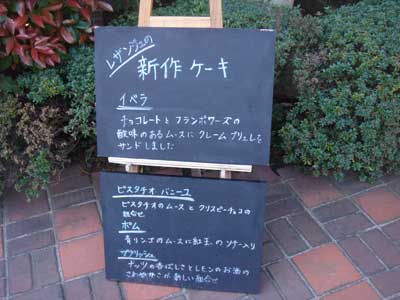 レザンジュの
新作ケーキ
イベラ
チョコレートとフランボワーズの
酸味のあるムースにクレームブリュレを
サンドしました
ピスタチオ バニーユ
ピスタチオのムースとクリスピーチョコの
組合せ
ポム
青リンゴのムースに紅玉のソテー入り
ナッツの香ばしさとレモンのお酒の
さわやかさが新しい組合せ